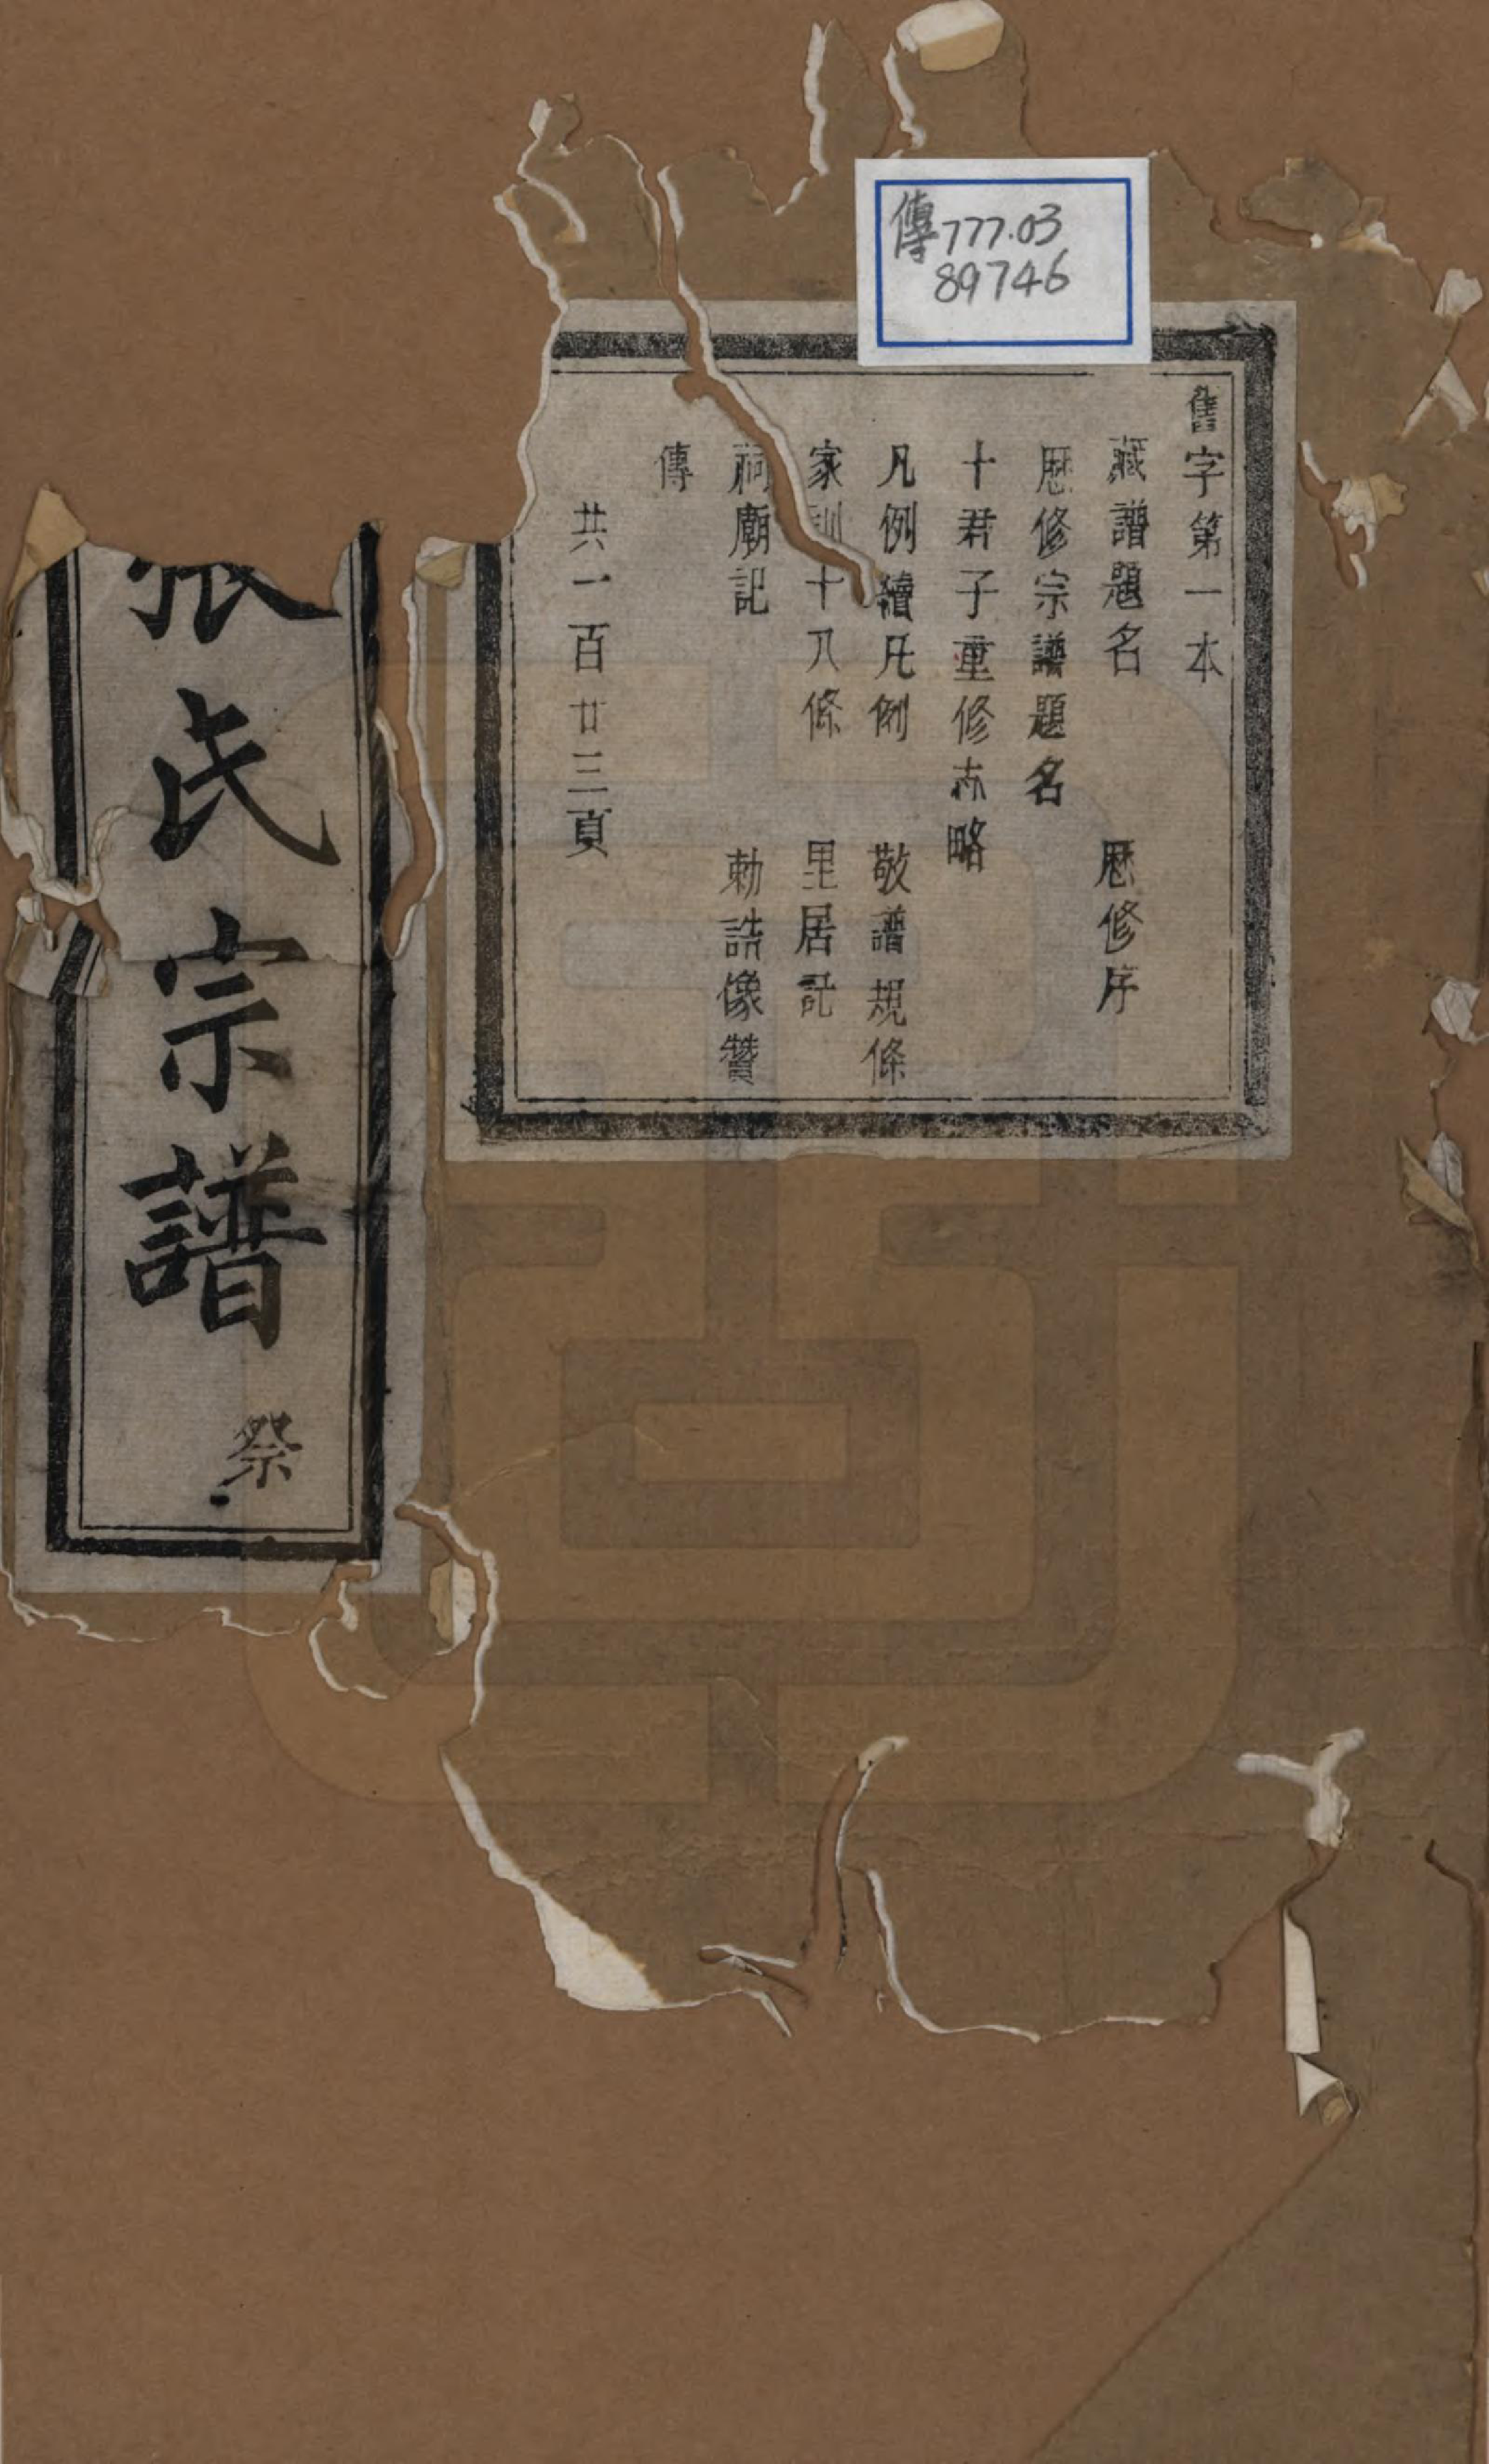 傳777.03
89746
舊字第一本
藏譜題名 歷修序
歷修宗譜題名
十君子重修志略
凡例續凡例 敬譜規條
家訓十八條 里居記
祠廟記 勅誥像贊
傳
共一百廿三頁
張氏宗譜
祭